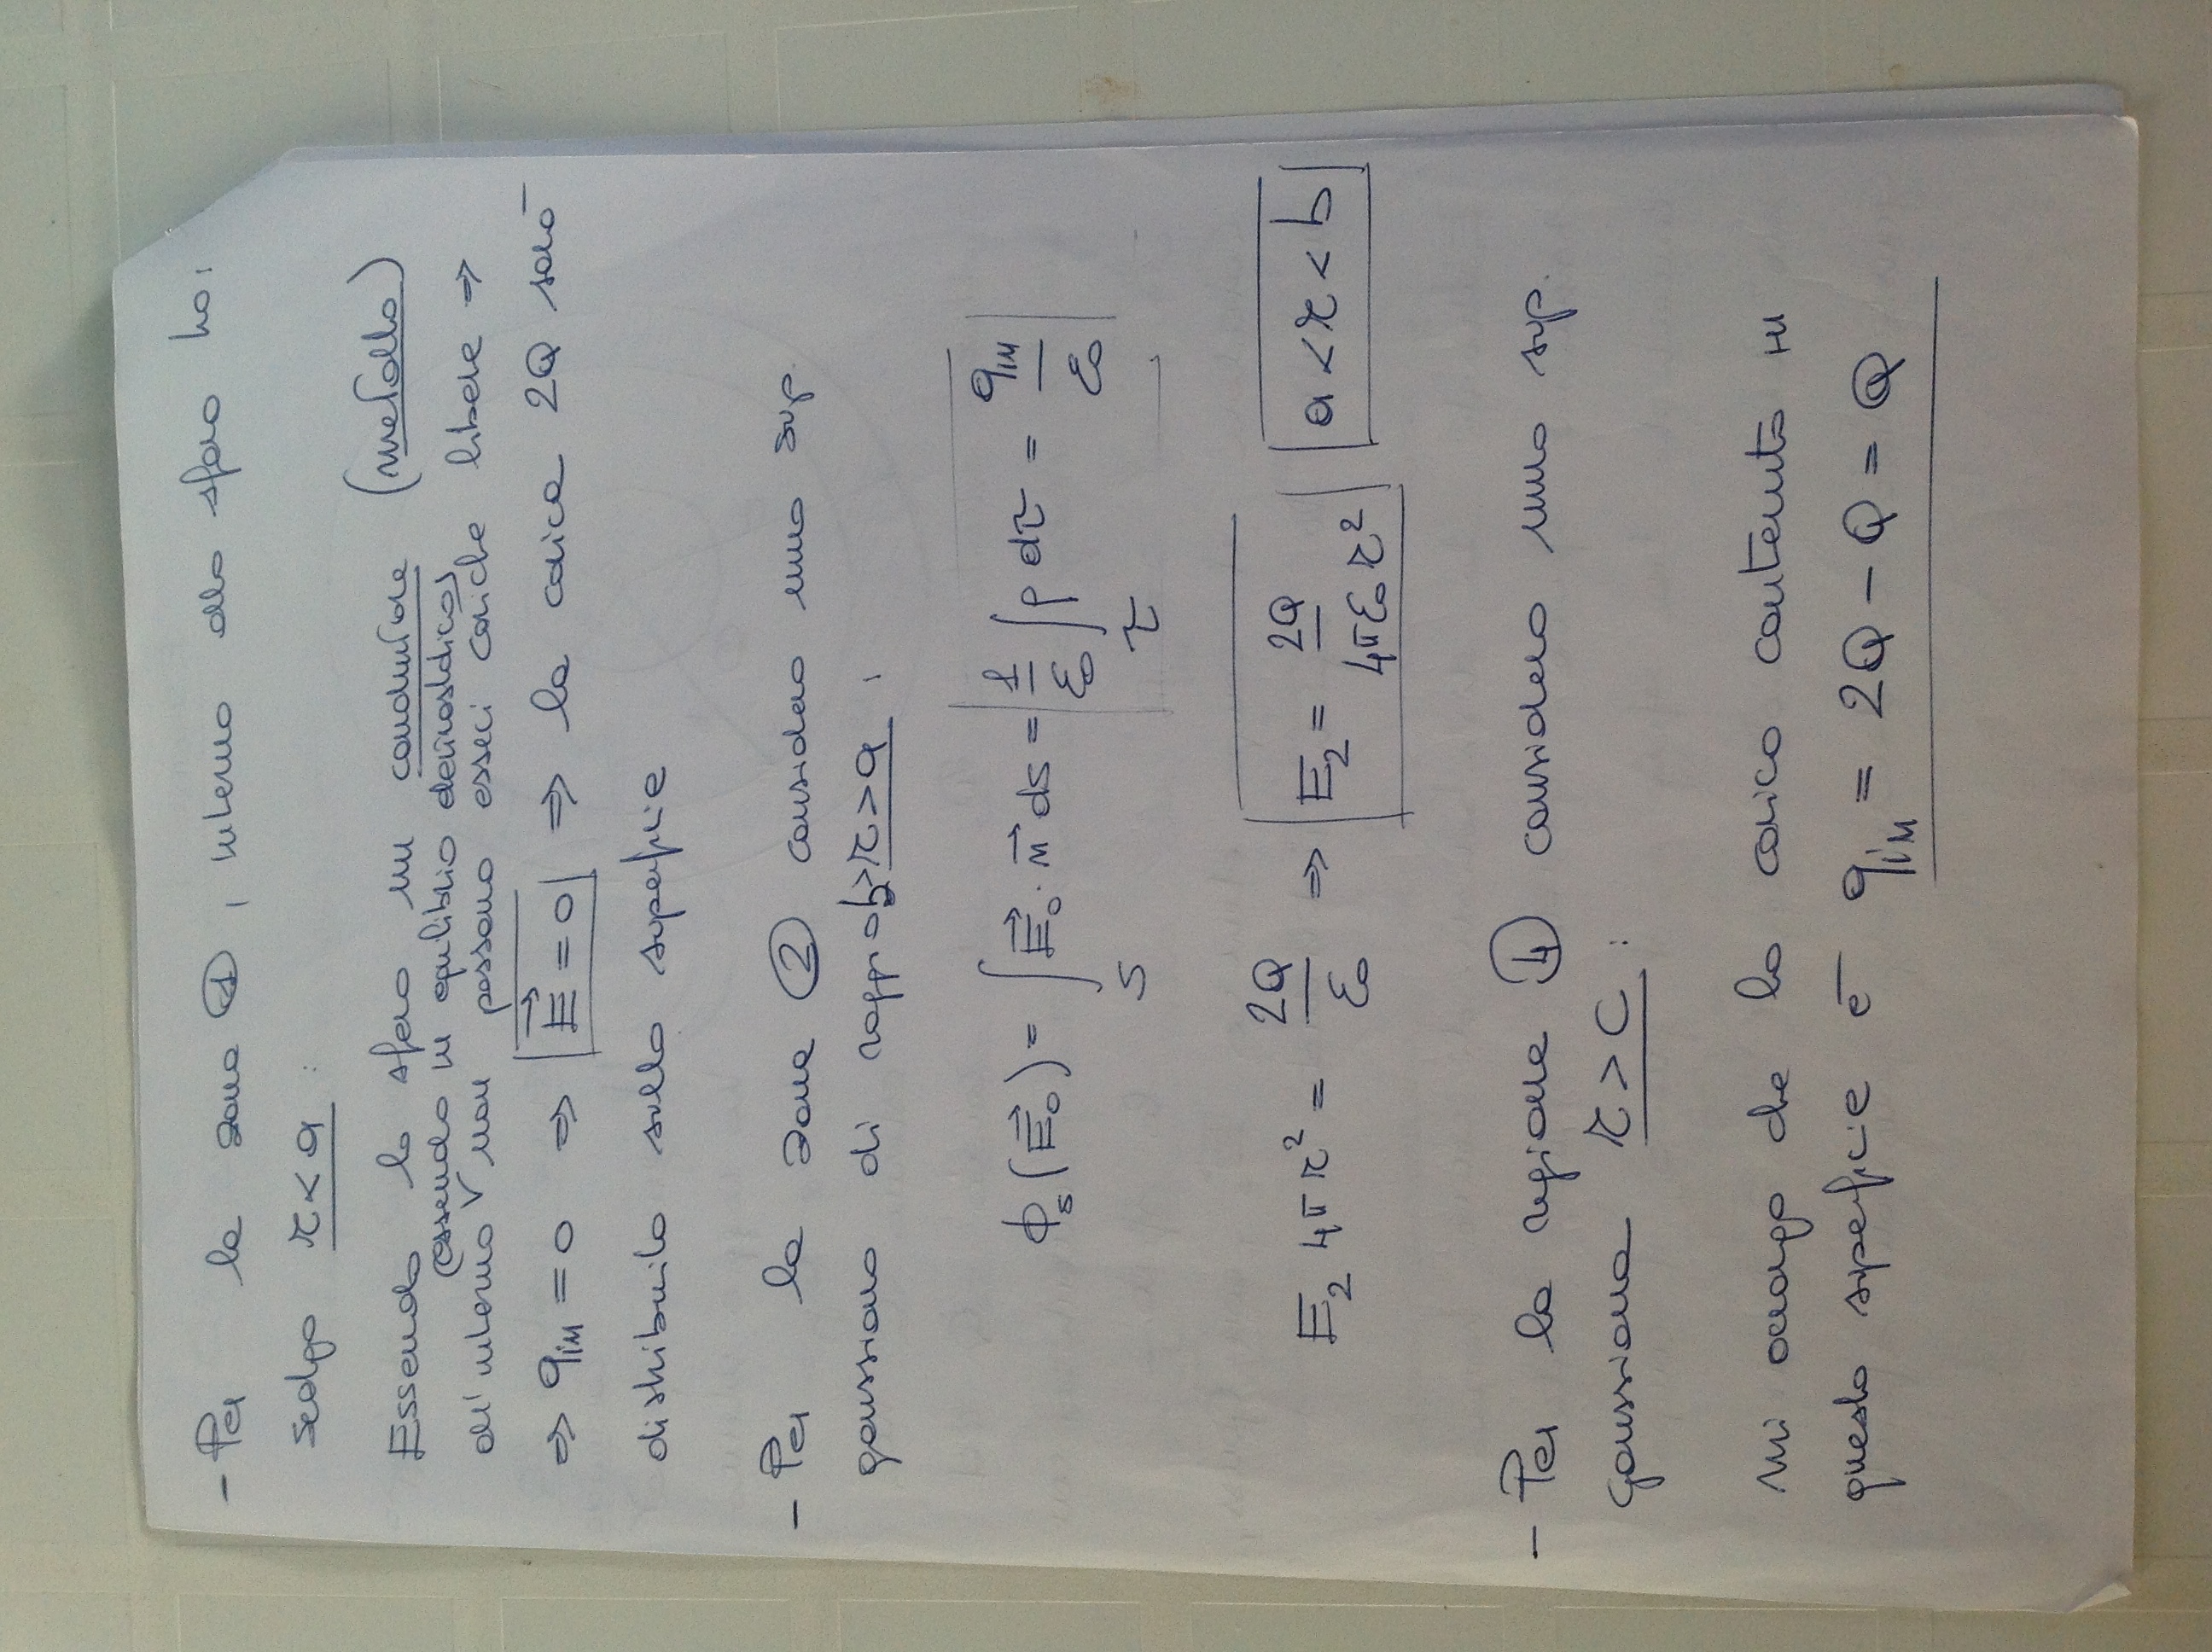 - Per la zona ①, interno alla sfera ho:
scelgo r < a :
Essendo la sfera un conduttore (metallo)
(essendo in equilibrio elettrostatico)
all'interno ∨ non possono esserci cariche libere ⇒
⇒ qin = 0 ⇒ E⃗ = 0 ⇒ la carica 2Q sarà
distribuita sulla superficie
- Per la zona ② considero una sup.
gaussiana di raggio b > r > a :
Φs(E⃗₀) = ∫S E⃗₀ · n⃗ ds = 1/ε₀ ∫τ ρ dτ = qin/ε₀
E₂ 4πr² = 2Q/ε₀ ⇒ E₂ = 2Q/4πε₀r² a < r < b
- Per la regione ④ considero una sup.
gaussiana r > c :
Mi accorgo che la carica contenuta in
questa superficie è qin = 2Q - Q = Q